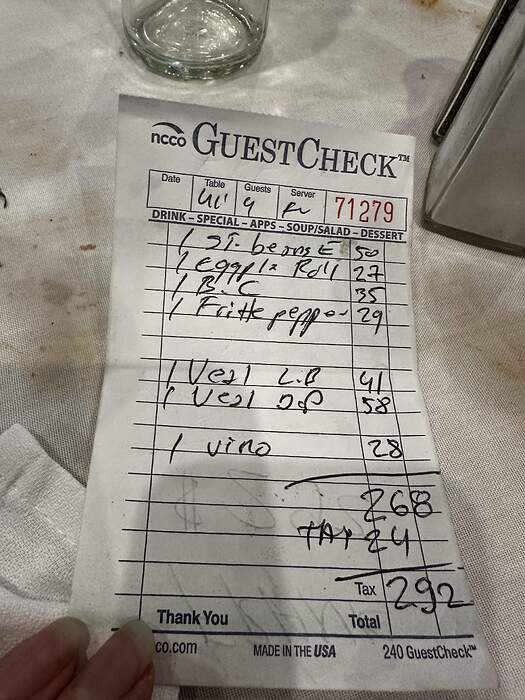 ncco GUESTCHECK™
Date Table Guests Server
4 71279
DRINK – SPECIAL – APPS – SOUP/SALAD – DESSERT
1 ST. beans E 50
1 eggpla Roll 27
1 B.C 35
1 Fritte pepper 29
1 Veal L.B 41
1 Veal 58
1 vino 28
268
TAX 24
Tax 292
Thank You Total
co.com MADE IN THE USA 240 GuestCheck™